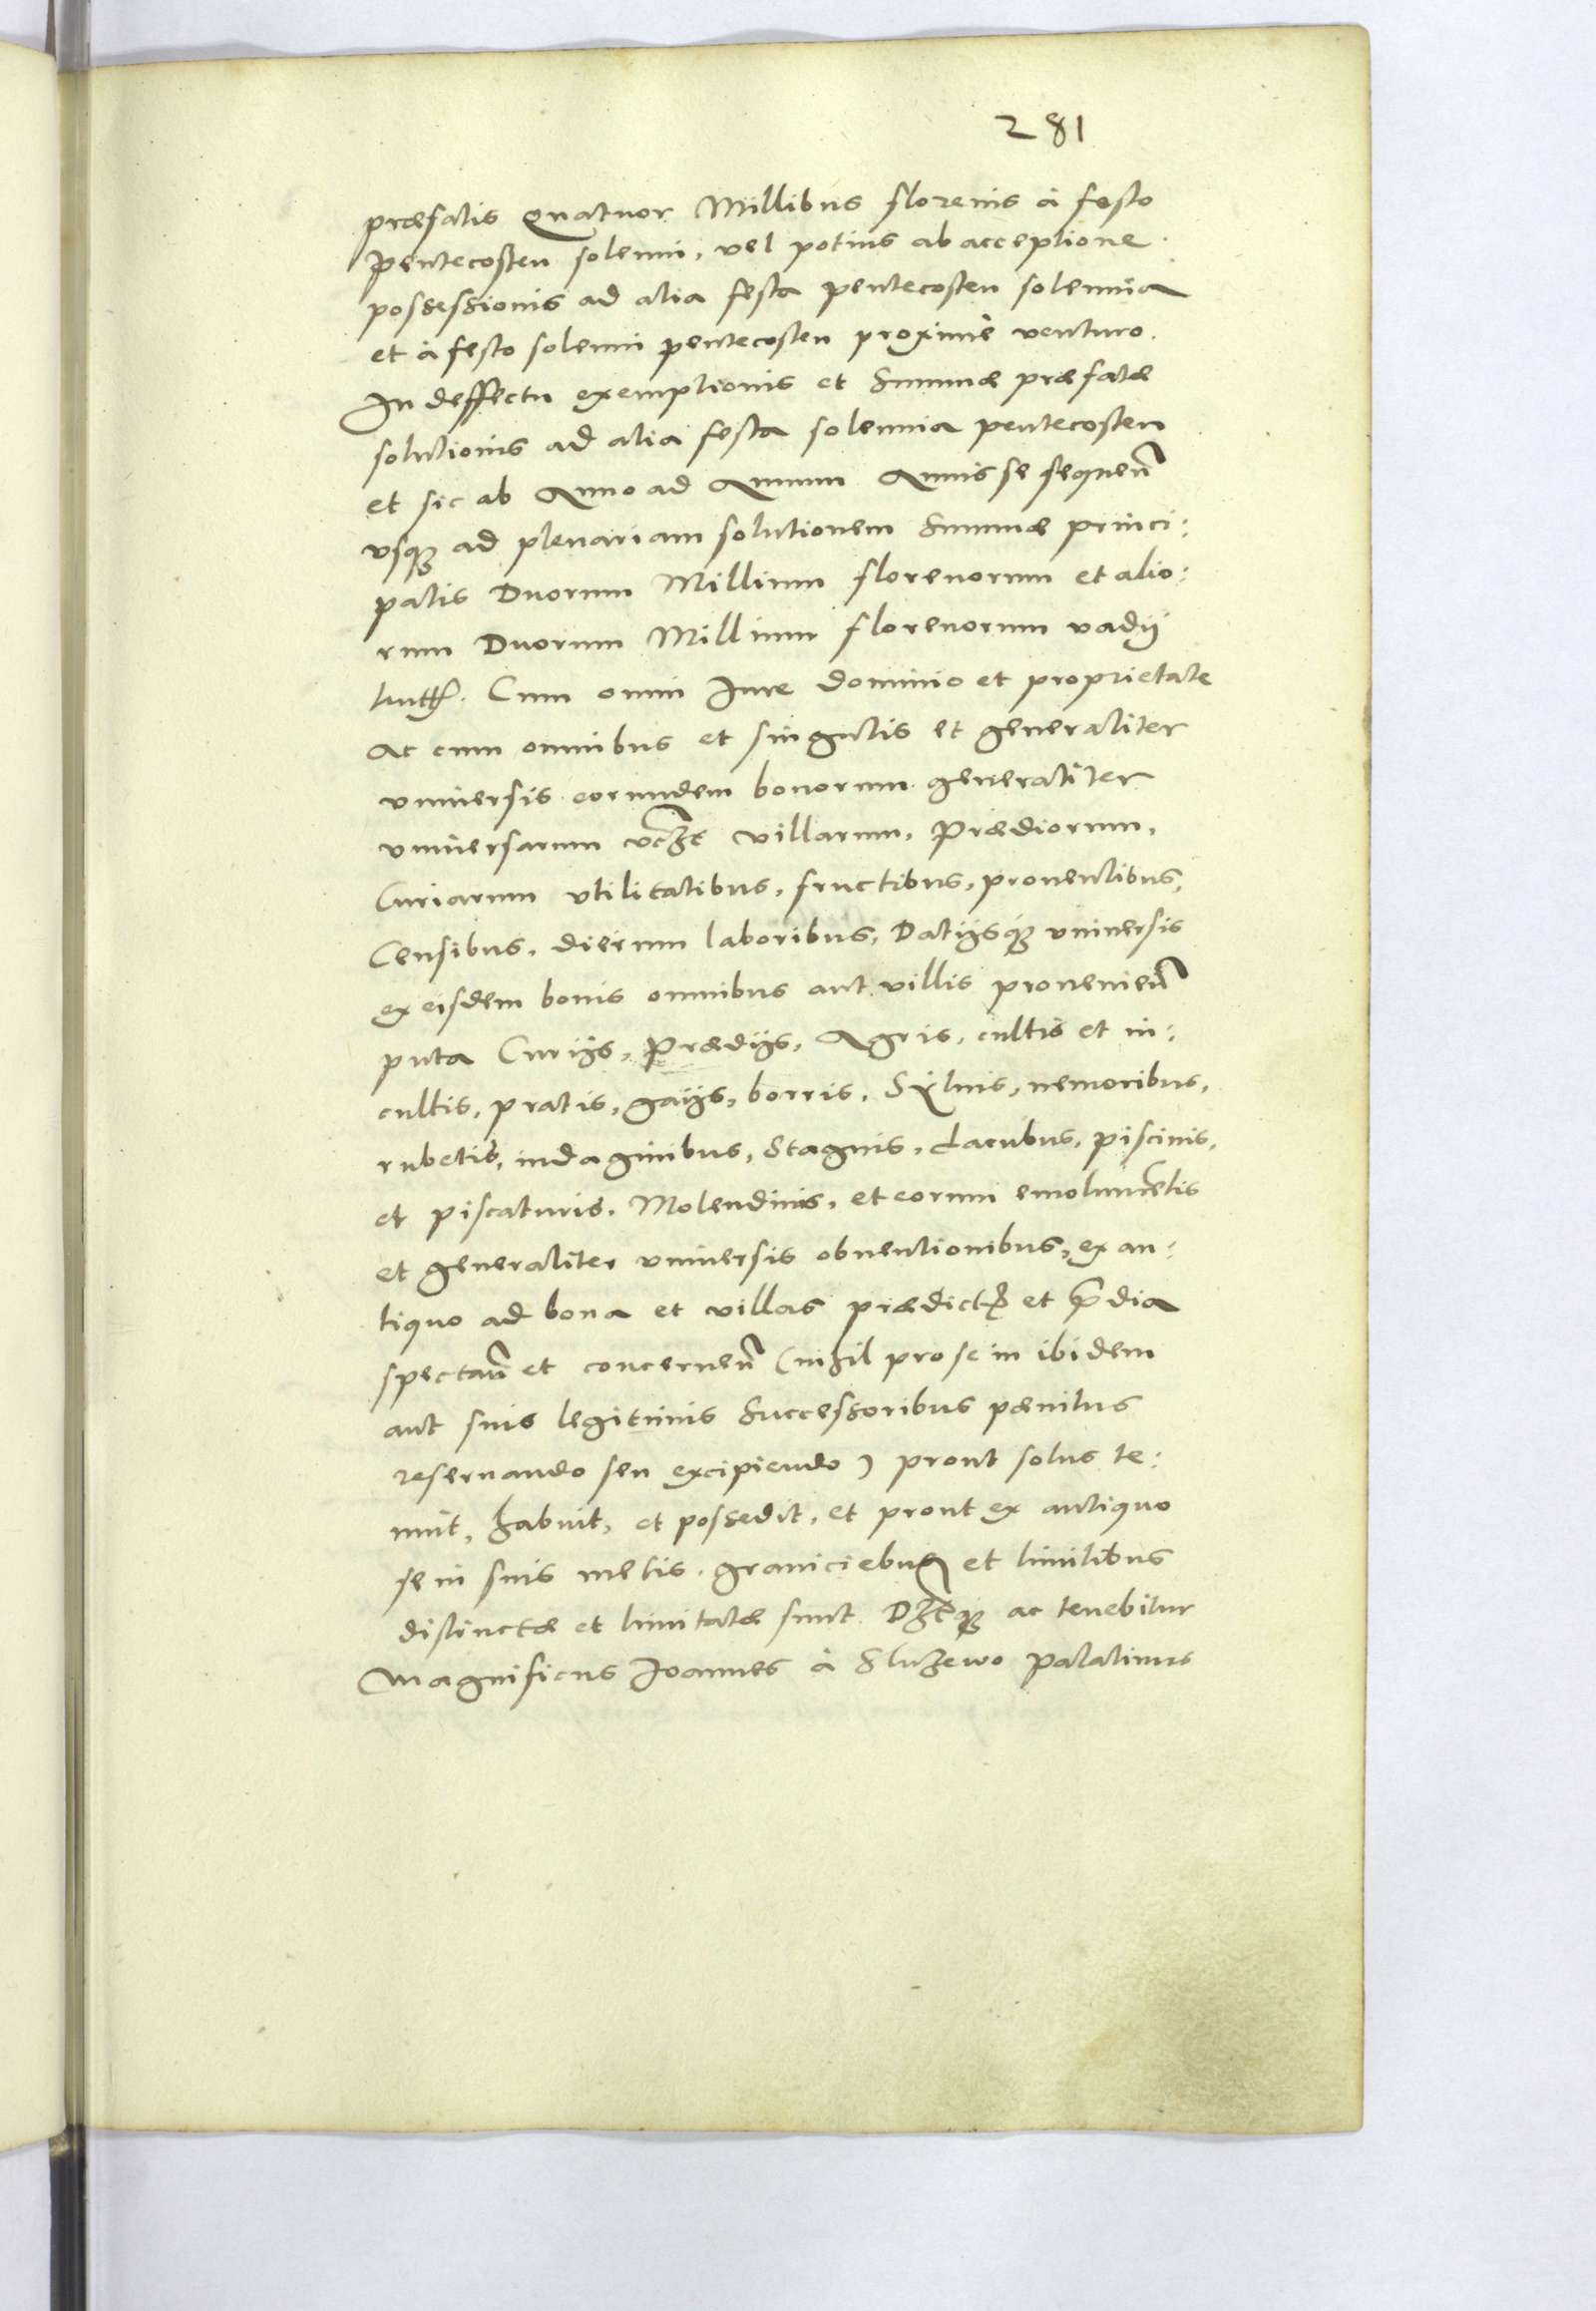 281
præfatis Quatuor Millibus florenis à festo
Pentecosten solenni, vel potius ab acceptione.
possessionis ad alia festa pentecosten solennia
et à festo solenni pentecosten proximè venturo.
In deffectu exemptionis et Summæ præfatæ
solutionis ad alia festa solennia pentecosten
et sic ab Anno ad Annum Annis se sequen̄
vsq₃ ad plenariam solutionem Summæ princi:
palis Duorum Millium florenorum et alio:
rum Duorum Millium florenorum vadij
Cum omni Iure dominio et proprietate
Ac cum omnibus et singulis et generaliter
vniuersis eorundem bonorum generaliter
vniuersarum vczt villarum, Prædiorum,
Curiarum vtilitatibus, fructibus, prouentibus,
Censibus, dierum laboribus, Datijsq₃ vniuersis
ex eisdem bonis omnibus aut villis prouenien̄
puta Curijs, Prædijs, Agris, cultis et in:
cultis, pratis, gaijs, borris, Sÿluis, nemoribus,
rubetis, indaginibus, Stagnis, Lacubus, piscinis,
et piscaturis, Molendinis, et eorum emolumētis
et generaliter vniuersis obuentionibus, ex an:
tiquo ad bona et villas prædict et p̄dia
spectan̄ et concernen̄ (nihil pro se in ibidem
aut suis legitimis Successoribus pænitus
reseruando seu excipiendo) prout solus te:
nuit, habuit, et possedit, et prout ex antiquo
se in suis metis, graniciebus et limitibus
distinctæ et limitatæ sunt. Dztq₃ ac tenebitur
Magnificus Ioannes à Sluzewo Palatinus